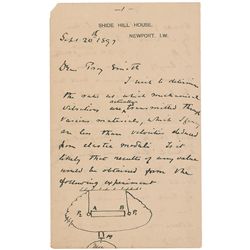 - 1 -
SHIDE HILL HOUSE,
NEWPORT, I.W.
Sept 20th 1897
Dear Prof Smith
I wish to determine
the rate at which mechanical
vibrations are actually transmitted through
various materials, which I find
are less than velocities deduced
from elastic moduli. Is it
likely that results of any value
would be obtained from the
following experiment
A
B
P1
P2